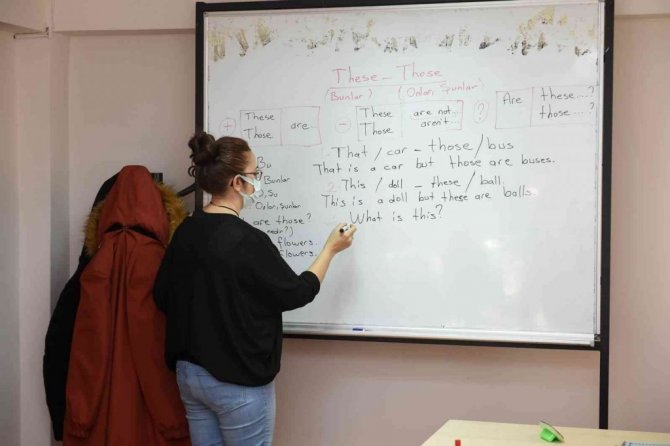 These - Those
(Bunlar) (Onlar, Şunlar)
+ These Those are
- These Those are not... aren't...
? Are these...? those...?
That / car - those / bus
That is a car but those are buses.
2. This / doll - these / ball
This is a doll but these are balls
What is this?
Bu
Bunlar
O, Şu
Onlar, Şunlar
are those?
nedir?)
flowers.
flowers.